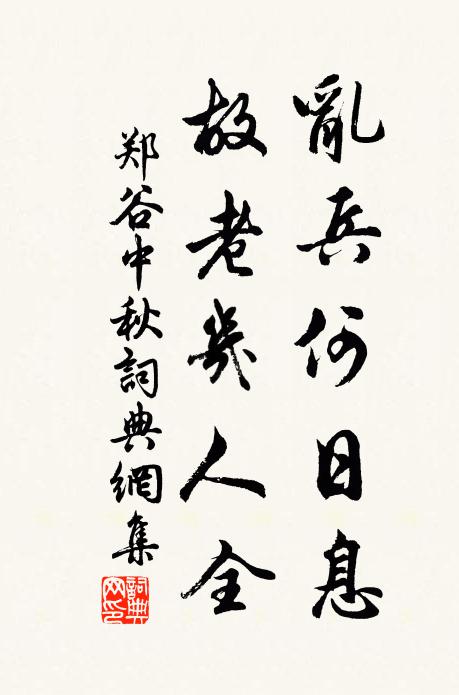 亂兵何日息
故老幾人全
郑谷中秋詞典網集
詞典網印